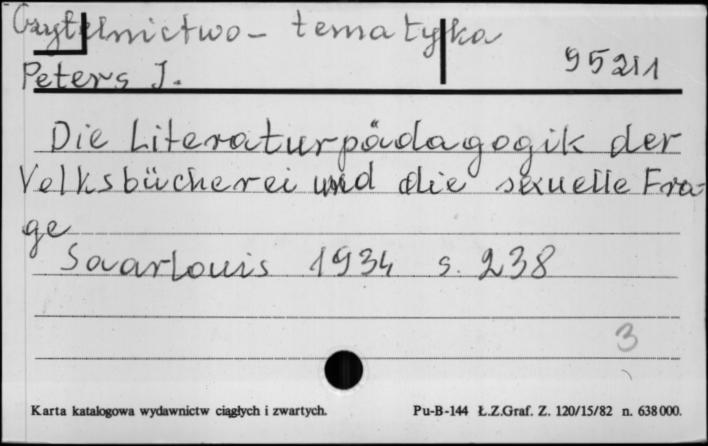 Czytelnictwo - tematyka
95211
Peters J.
Die Literaturpädagogik der
Volksbücherei und die sexuelle Fra-
ge
Saarlouis 1934 s. 238
3
Karta katalogowa wydawnictw ciągłych i zwartych. Pu-B-144 Ł.Z.Graf. Z. 120/15/82 n. 638000.